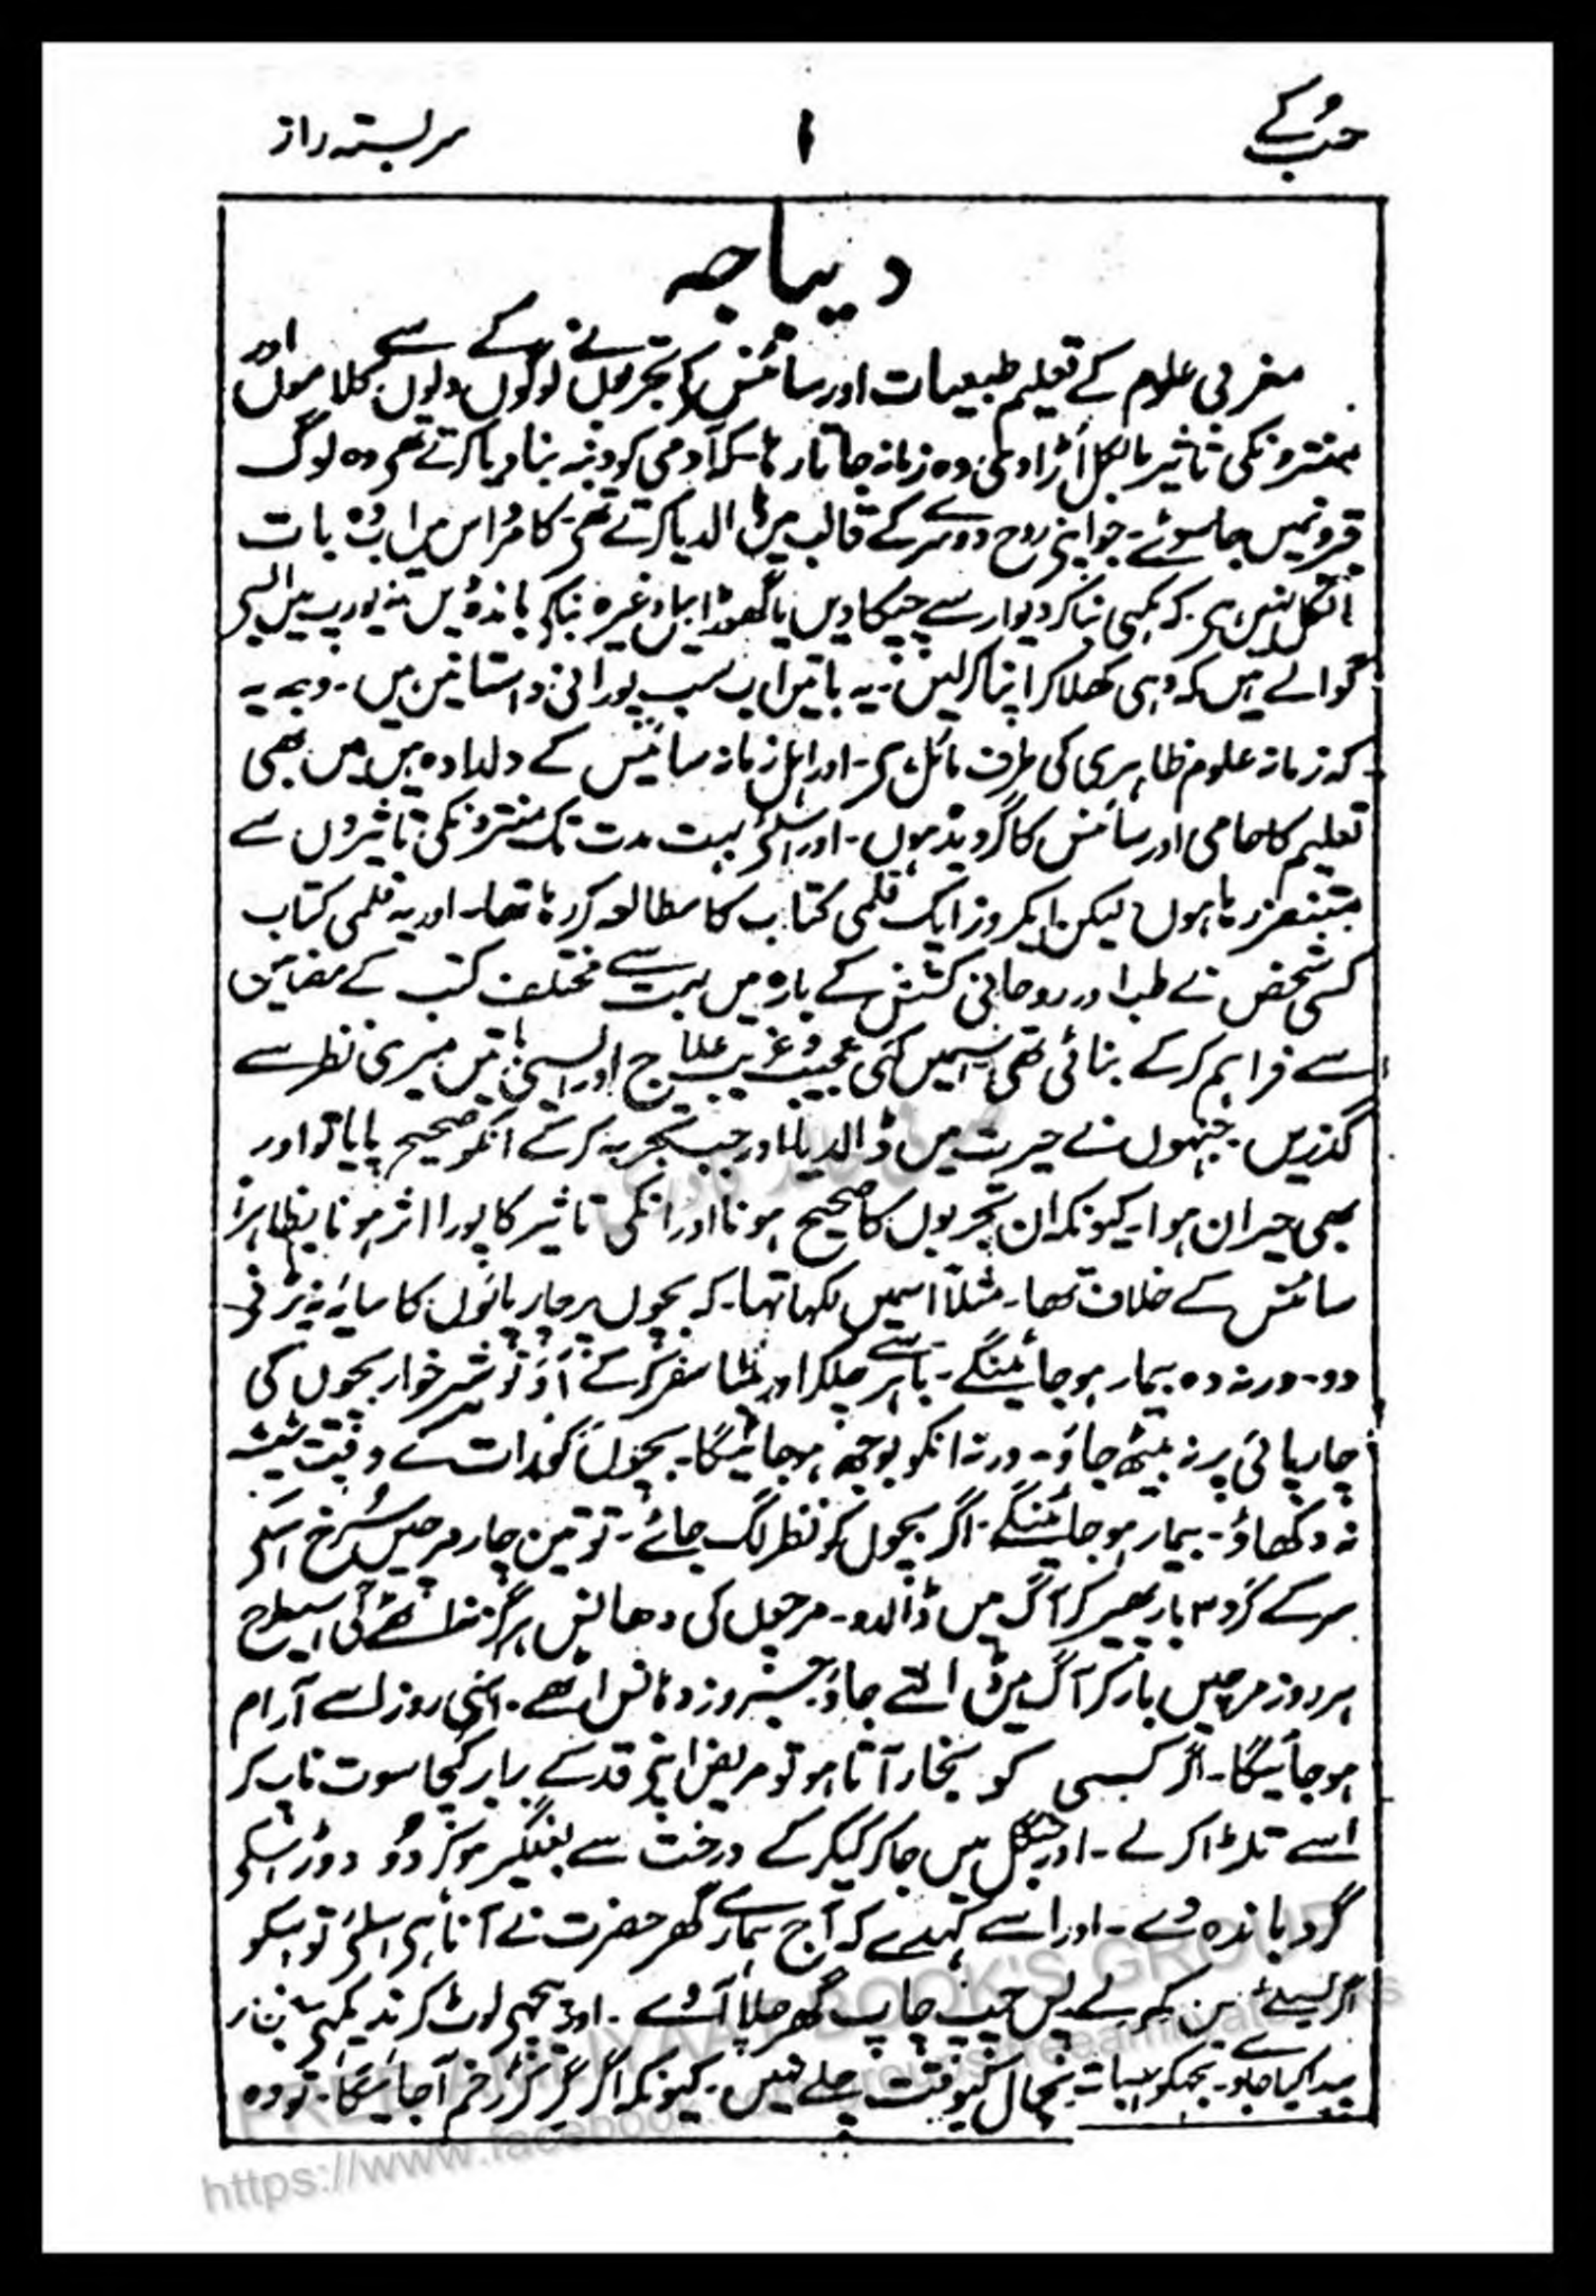 حُب کے
۱
سربستہ راز
دیباچہ
مغربی علوم کے تعلیم طبیعیات اور سائنس کے تجربوں نے لوگوں کے دلوں سے کلاموں اور
منترونکی تاثیر بالکل اُڑا دی وہ زمانہ جاتا رہا کہ آدمی کو دنبہ بنا دیا کرتے تھے وہ لوگ
قبرونمیں جا سوئے۔ جو اپنی روح دوسرے کے قالب میں ڈالدیا کرتے تھے۔ کامُراس میں اب وُہ بات
بالکل نہیں ہے کہ مکھی بنا کر دیوار سے چپکا دیں یا گھوڑا بیل وغیرہ بنا کر باندھ دیں نہ یورپ میں ایسی
گوالے ہیں کہ دہی کھلا کر اپنا کر لیں۔ یہ باتیں اب سب پورانی داستانیں ہیں۔ وجہ یہ
کہ زمانہ علوم ظاہری کی طرف مائل ہے۔ اور اہل زمانہ سائنیس کے دلدادہ ہیں میں بھی
تعلیم کا حامی اور سائنس کا گرویدہ ہوں۔ اور اسلئے بہت مدت تک منترونکی تاثیروں سے
متنفر رہا ہوں لیکن ایکروز ایک قلمی کتاب کا مطالعہ کر رہا تھا۔ اور یہ قلمی کتاب
کسی شخص نے طب اور روحانی کشش کے بارہ میں بہت سے مختلف کتب کے مضامین
سے فراہم کر کے بنائی تھی اسمیں کئی عجیب و غریب علاج اور ایسی باتیں میری نظر سے
گذریں۔ جنہوں نے حیرت میں ڈالدیا اور جب تجربہ کر کے انکو صحیح پایا تو اور
بھی حیران ہوا۔ کیونکہ ان تجربوں کا صحیح ہونا اور انکی تاثیر کا پورا اثر ہونا بظاہر
سائنس کے خلاف تھا۔ مثلاً اسمیں لکھا تھا۔ کہ بچوں پر چارپائوں کا سایہ نہ پڑنے
دو۔ ورنہ وہ بیمار ہو جائینگے۔ باہر سے چلکر اور لمبا سفر کر کے آؤ تو شیرخوار بچوں کی
چارپائی پر نہ بیٹھ جاؤ۔ ورنہ انکو بوجھ ہو جائیگا۔ بچوں کو رات کے وقت شیشہ
نہ دکھاؤ۔ بیمار ہو جائینگے۔ اگر بچوں کو نظر لگ جائے۔ تو تین چار مرچیں سُرخ اسکے
سر کے گرد ۳ بار پھیر کر آگ میں ڈالدو۔ مرچوں کی دھانس ہرگز نہ اٹھے گی اسیطرح
ہر روز مرچیں بار کر آگ میں ڈالتے جاؤ جسروز دہانس اٹھے۔ اسی روز اسے آرام
ہو جائیگا۔ اگر کسی کو بخار آتا ہو تو مریض اپنے قد کے برابر کچا سوت ناپ کر
اسے تلڑا کرلے۔ اور جنگل میں جا کر کیکر کے درخت سے بغلگیر ہو کر وُہ دوڑ اسکے
گرد باندھ دے۔ اور اسے کہدے کہ آج ہمارے گھر حضرت نے آنا ہے اسلئے تو اسکو
چپ چاپ گھر چلا آوے۔ اور پیچھے لوٹ کر نہ دیکھے
کیونکہ اگر زخم آجائیگا۔ تو وہ
FREE AMLIYAAT BOOK'S GROUP
https://www.facebook.com/groups/freeamliyatbooks